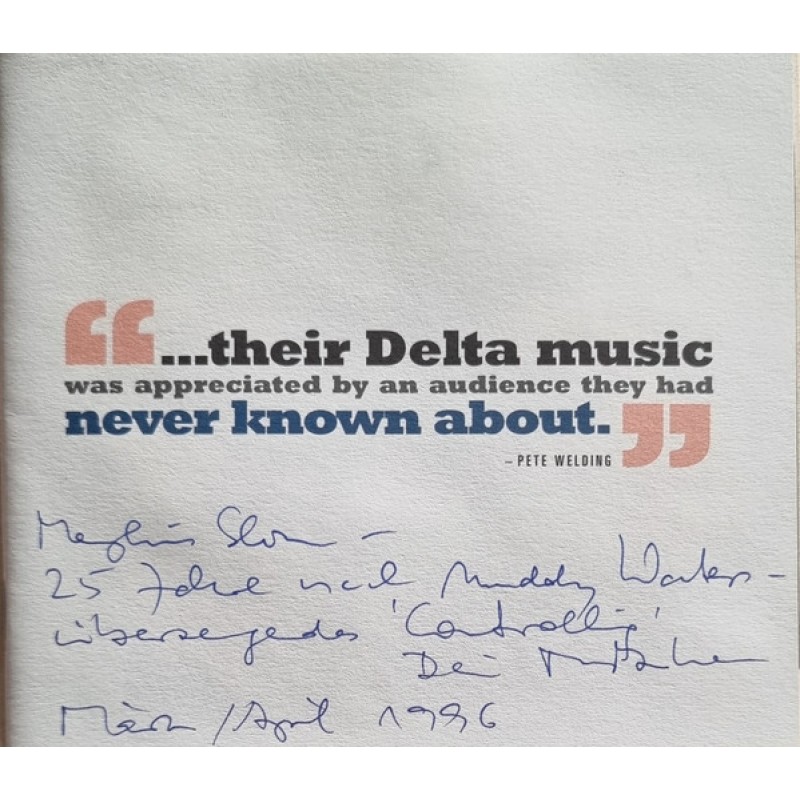 “...their Delta music
was appreciated by an audience they had
never known about.”
– PETE WELDING
25 Jahre nach Muddy Waters –
'Controlling'
Dein
März/April 1996